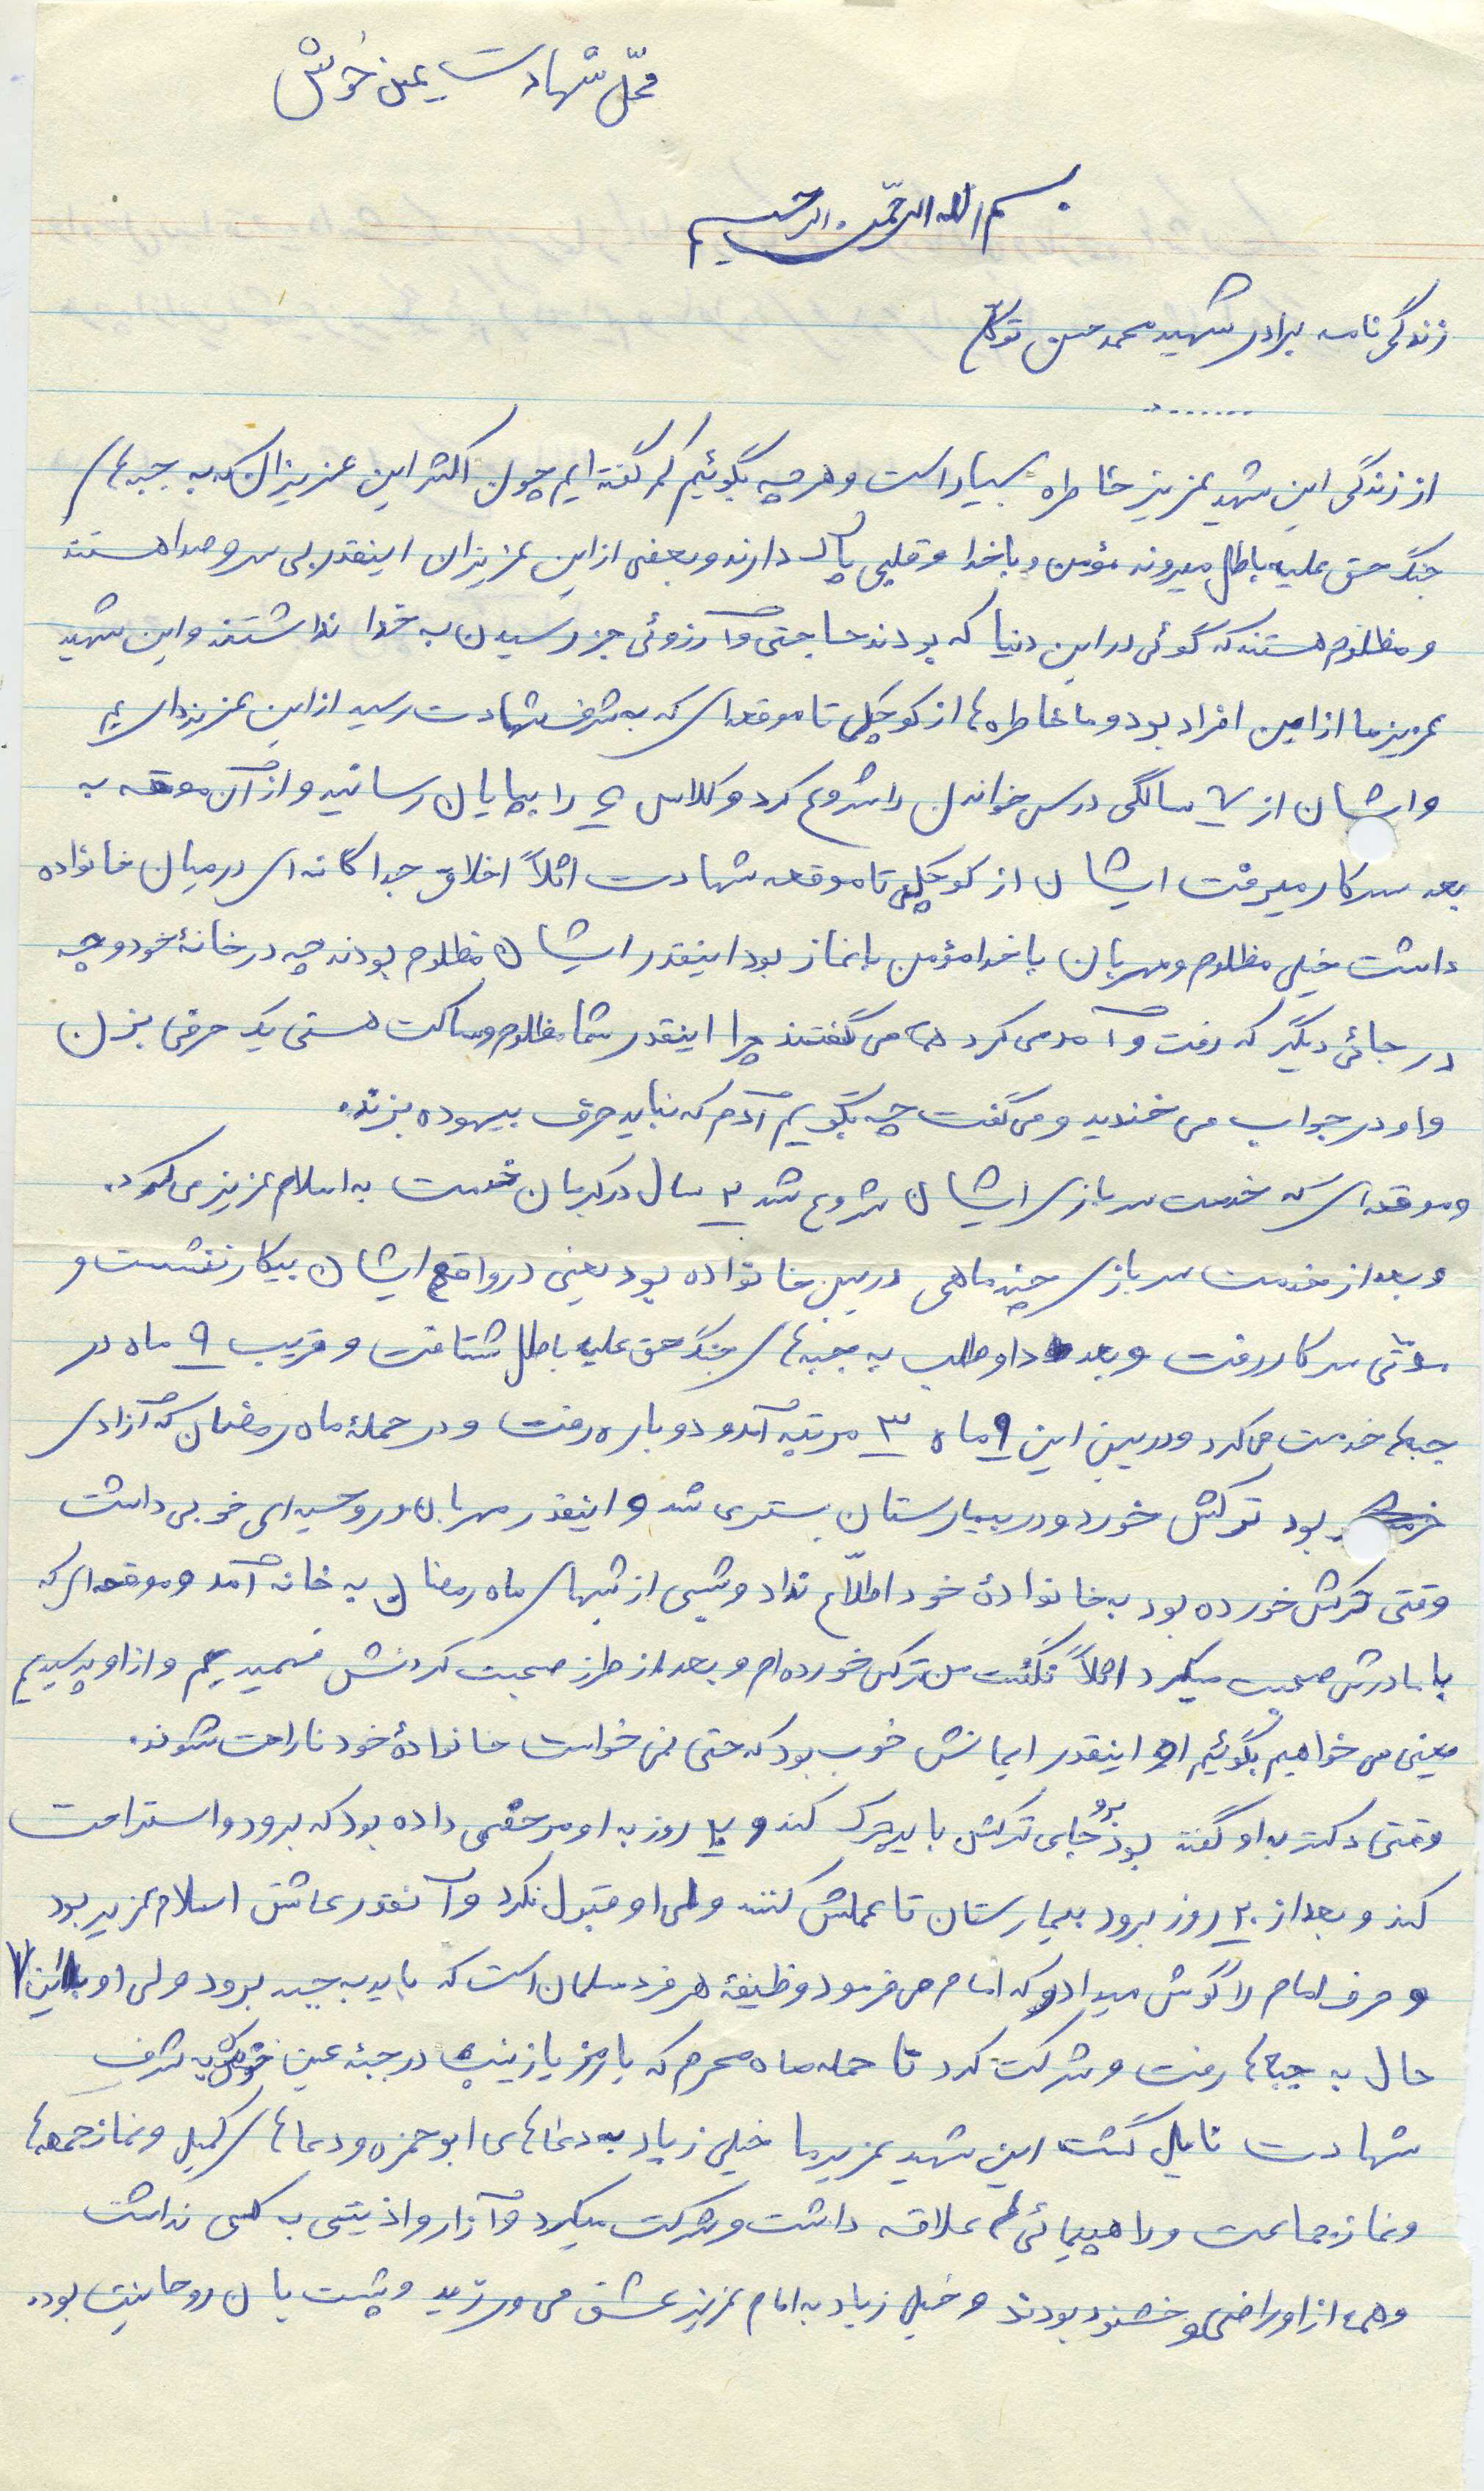 محلّ شهادت عین خوش
بسم الله الرحمّن الرحیم
زندگی نامه برادر شهید محمد حسن توکلی
........
از زندگی این شهید عزیز خاطره بسیار است و هر چه بگوئیم کم گفته ایم چون اکثر این عزیزان که به جبهه های
جنگ حق علیه باطل میروند مؤمن و با خدا و قلبی پاک دارند و بعضی از این عزیزان اینقدر بی سر و صدا هستند
و مظلوم هستند که گوئی در این دنیا که بودند حاجتی و آرزوئی جز رسیدن به خدا نداشتند و این شهید
عزیز ما از این افراد بود و ما خاطره ها از کوچکی تا موقعه ای که به شرف شهادت رسید از این عزیز داریم
و ایشان از ۷ سالگی درس خواندن را شروع کرد و کلاس را بپایان رسانید و از آن موقعه به
بعد سر کار میرفت ایشان از کوچکی تا موقعه شهادت اصلاً اخلاق جداگانه ای در میان خانواده
داشت خیلی مظلوم و مهربان با خدا مؤمن با نماز بود اینقدر ایشان مظلوم بودند چه در خانهٔ خود و چه
در جائی دیگر که رفت و آمد می کرد همه می گفتند چرا اینقدر شما مظلوم و ساکت هستی یک حرفی بزن
و او در جواب می خندید و می گفت چه بگویم آدم که نباید حرف بیهوده بزند.
و موقعه ای که خدمت سربازی ایشان شروع شد ۲ سال در کرمان خدمت به اسلام عزیز می کرد.
و بعد از خدمت سربازی چند ماهی در بین خانواده بود یعنی در واقع ایشان بیکار ننشست و
مدّتی سر کار رفت و بعد داوطلب به جبهه های جنگ حق علیه باطل شتافت و قریب ۹ ماه در
جبهه ها خدمت می کرد و در بین این ۹ ماه ۳ مرتبه آمد و دوباره رفت و در حملهٔ ماه رمضان که آزادی
بود ترکش خورد و در بیمارستان بستری شد و اینقدر مهربان و روحیه ای خوبی داشت
وقتی ترکش خورده بود به خانوادهٔ خود اطلّاع نداد و شبی از شبهای ماه رمضان به خانه آمد و موقعه ای که
با مادرش صحبت میکرد اصلاً نگفت من ترکش خورده ام و بعد از طرز صحبت کردنش فهمیدیم و از او پرسیدیم
یعنی می خواهیم بگوئیم او اینقدر ایمانش خوب بود که حتی نمی خواست خانوادهٔ خود ناراحت شوند.
وقتی دکتر به او گفته بود برو جای ترکش باید چرک کند و ۲۰ روز به او مرخصی داده بود که برود و استراحت
کند و بعد از ۲۰ روز برود بیمارستان تا عملش کنند ولی او قبول نکرد و آنقدر عاشق اسلام عزیز بود
و حرف امام را گوش میداد که امام می فرمود وظیفهٔ هر فرد مسلمان است که باید به جبهه برود ولی او با این
حال به جبهه ها رفت و شرکت کرد تا حمله ماه محرم که با رمز یا زینب در جبههٔ عین خوش به شرف
شهادت نایل گشت این شهید عزیز ما خیلی زیاد به دعاهای ابوحمزه و دعاهای کمیل و نماز جمعه ها
و نماز جماعت و راهپیمائی ها علاقه داشت و شرکت میکرد و آزار و اذیتی به کسی نداشت
و همه از او راضی و خشنود بودند و خیلی زیاد به امام عزیز عشق می ورزید و پشتیبان روحانیت بود.